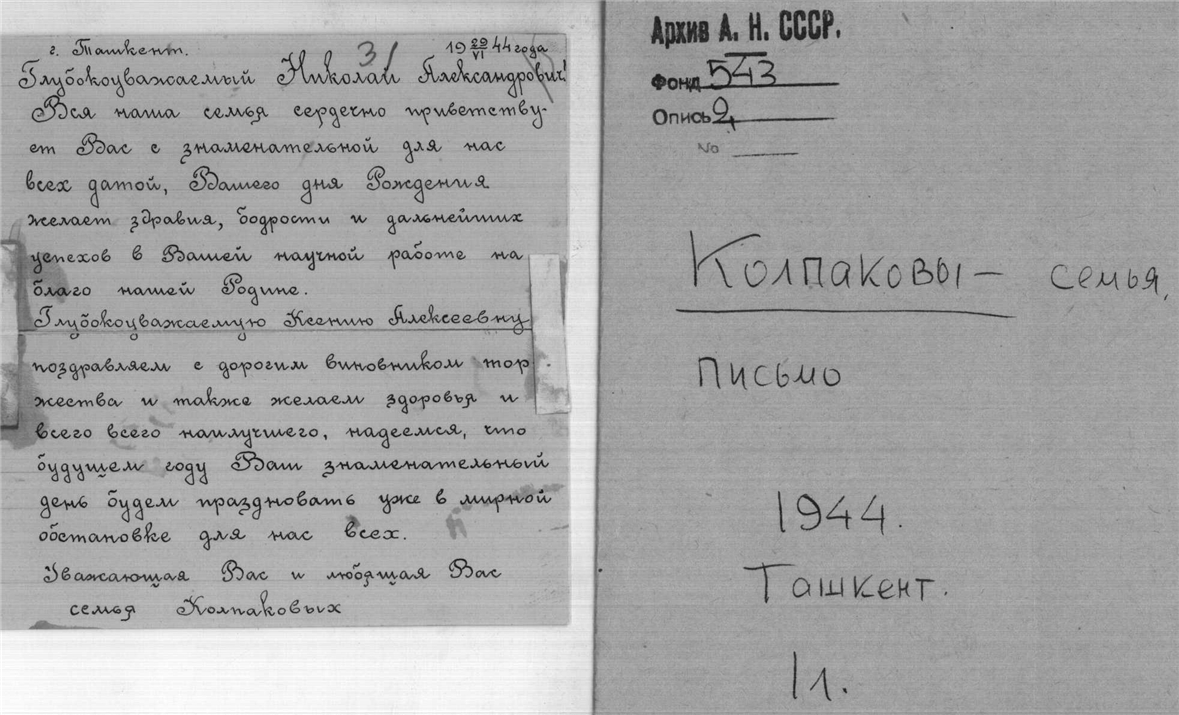 г. Ташкент. 31 19 29/VI 44 года
Глубокоуважаемый Николай Александрович!
Вся наша семья сердечно приветству-
ет Вас с знаменательной для нас
всех датой, Вашего дня Рождения
желает здравия, бодрости и дальнейших
успехов в Вашей научной работе на
благо нашей Родине.
Глубокоуважаемую Ксению Алексеевну
поздравляем с дорогим виновником тор
жества и также желаем здоровья и
всего всего наилучшего, надеемся, что
будущем году Ваш знаменательный
день будем праздновать уже в мирной
обстановке для нас всех.
Уважающая Вас и любящая Вас
семья Колпаковых
Архив А. Н. СССР.
Фонд 543
Опись 2
No
Колпаковы – семья,
письмо
1944.
Ташкент.
1 л.